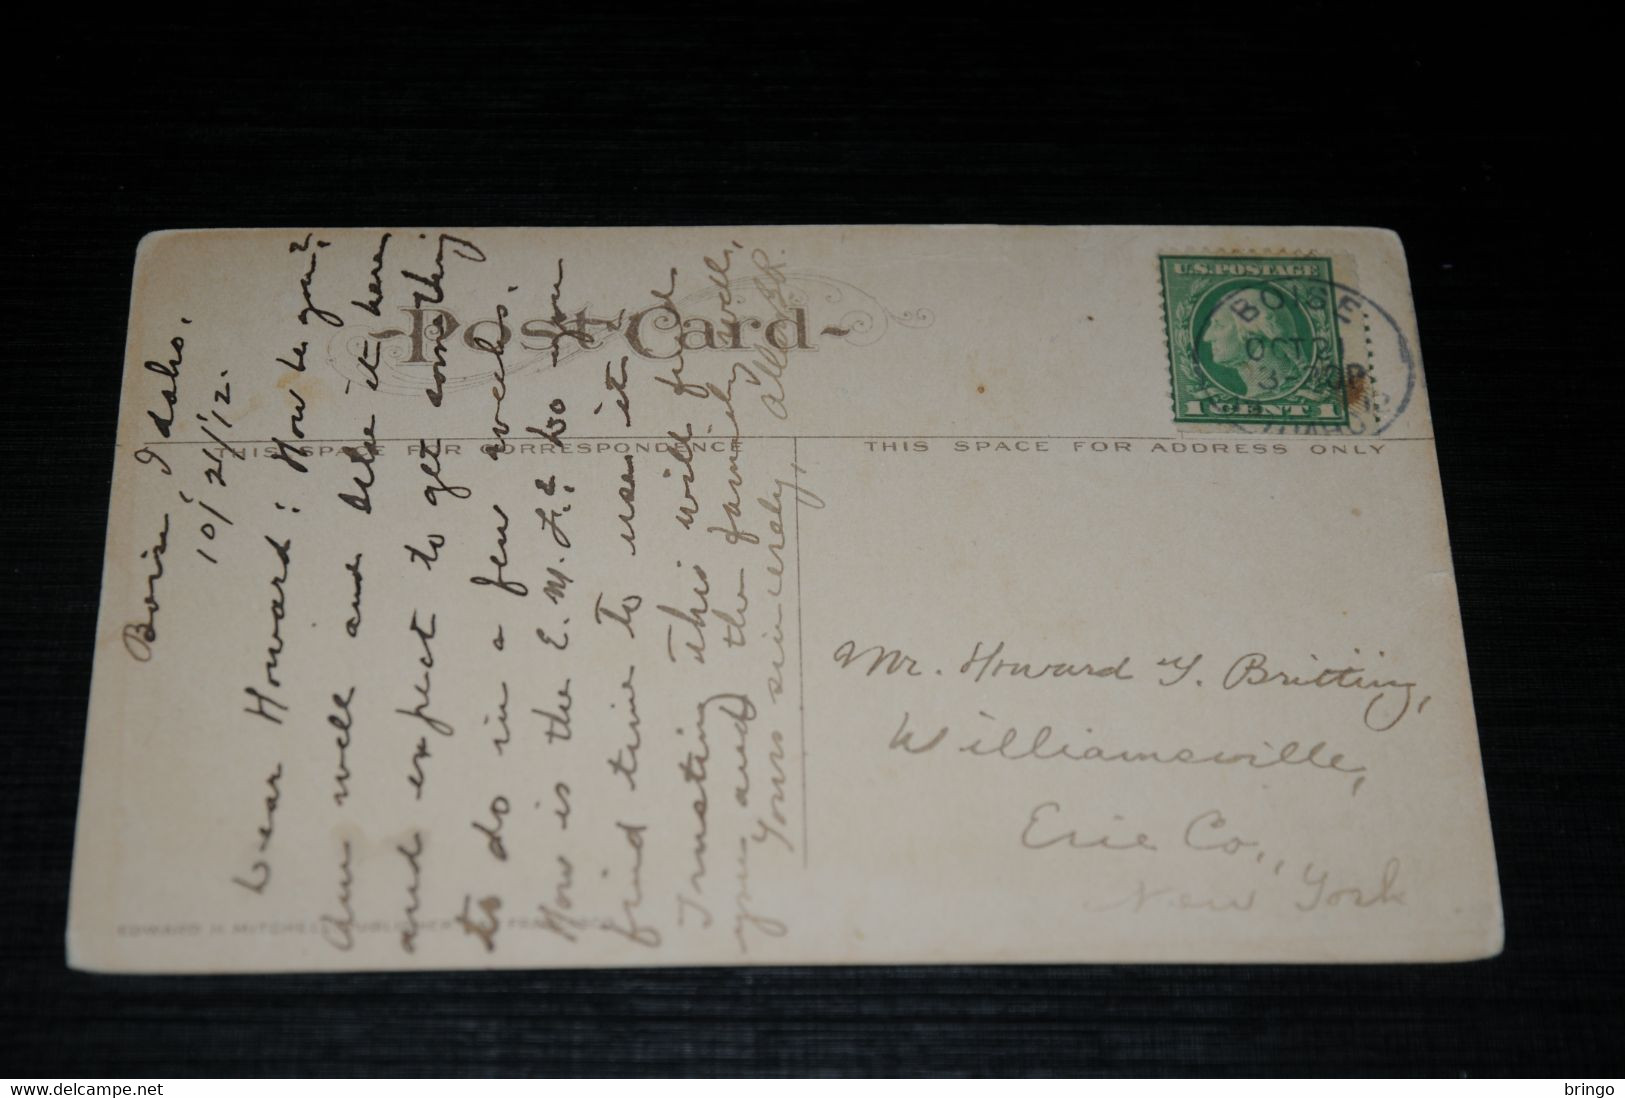 Boise, Idaho.
10/21/12.
Dear Howard: How be you?
Am well and like it here
and expect to get something
to do in a few weeks.
How is the E.M.F.? Do you
find time to use it.
Trusting this will find
you and the family well,
Yours sincerely,
Post Card
THIS SPACE FOR CORRESPONDENCE
THIS SPACE FOR ADDRESS ONLY
U.S. POSTAGE
1 CENT 1
BOISE
OCT 21
IDAHO
Mr. Howard G. Britting,
Williamsville,
Erie Co.,
New York
EDWARD H. MITCHELL, PUBLISHER, SAN FRANCISCO
www.delcampe.net
bringo